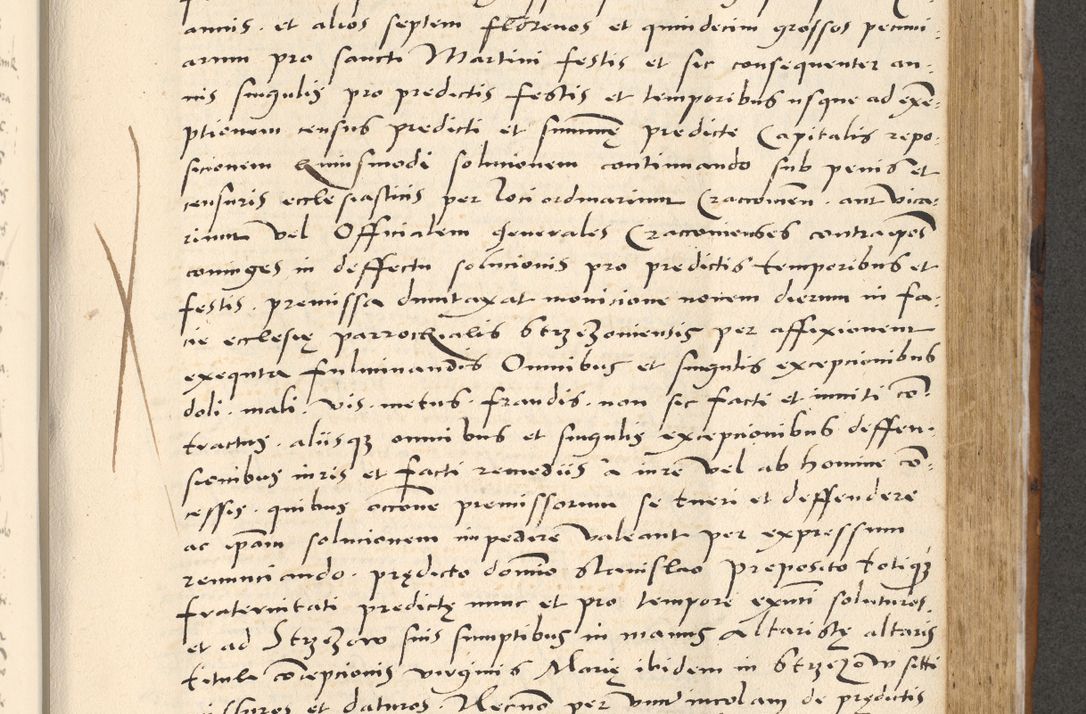 annis . et alios septem florenos et quindecim grossos pecuni
arum pro sancti Martini festis et sic consequenter an-
nis singulis pro predictis festis et temporibus usque ad exe-
ptionem census predicti et summę predicte Capitalis repo-
sicionem huiusmodi solucionem continuando sub penis et
censuris ecclesiasticis per loci ordinarium Cracouien . aut vica-
rium vel Officialem generales Cracouienses contra ipos
coniuges in deffectu solucionis pro predictis temporibus et
festis . premissa dumtaxat monicione novem dierum in fa-
cie ecclesię parrochialis Strzezouiensis per affixionem
exequuta fulminandis Omnibus et singulis excepcionibus
doli . mali . vis . metus . fraudis . non sic facti et initi cō-
tractus . aliisqz omnibus et singulis excepcionibus deffen-
sionibus iuris et facti remediis a iure vel ab homine cō-
cessis . quibus occōne premissorum se tueri et deffendere
ac ipam solucionem impedire valeant per expressum
renunciando . prędicto domino Stanislao Preposito totiqz
fraternitati predictę nunc et pro tempore exnti soluturos .
et ad Strzezow suis sumptibus in manus Altaristę altaris
tituli concepcionis virginis Marię ibidem in Strzezow siti
et daturos . Necno per per de prędictis